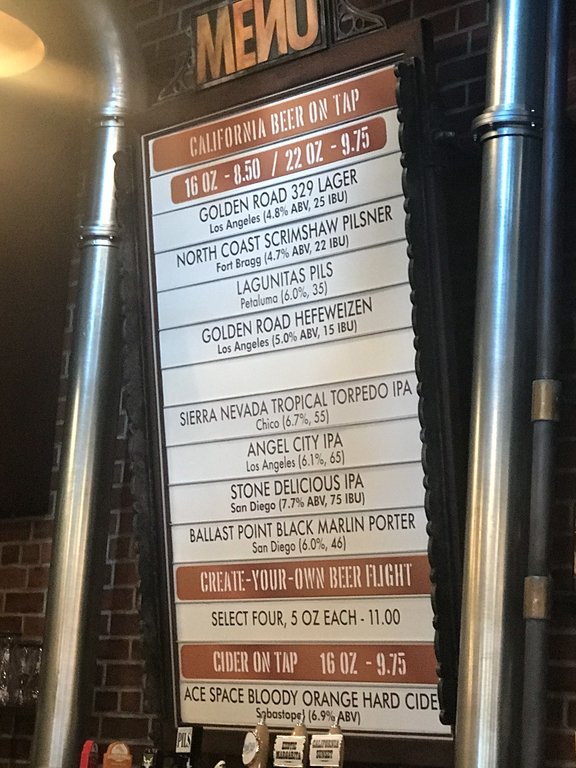 MENU
CALIFORNIA BEER ON TAP
16 OZ - 8.50 / 22 OZ - 9.75
GOLDEN ROAD 329 LAGER
Los Angeles (4.8% ABV, 25 IBU)
NORTH COAST SCRIMSHAW PILSNER
Fort Bragg (4.7% ABV, 22 IBU)
LAGUNITAS PILS
Petaluma (6.0%, 35)
GOLDEN ROAD HEFEWEIZEN
Los Angeles (5.0% ABV, 15 IBU)
SIERRA NEVADA TROPICAL TORPEDO IPA
Chico (6.7%, 55)
ANGEL CITY IPA
Los Angeles (6.1%, 65)
STONE DELICIOUS IPA
San Diego (7.7% ABV, 75 IBU)
BALLAST POINT BLACK MARLIN PORTER
San Diego (6.0%, 46)
CREATE-YOUR-OWN BEER FLIGHT
SELECT FOUR, 5 OZ EACH - 11.00
CIDER ON TAP 16 OZ - 9.75
ACE SPACE BLOODY ORANGE HARD CIDE
Sabastopol (6.9% ABV)
PILS
MARGARITA
CALIFORNIA
SUNSET